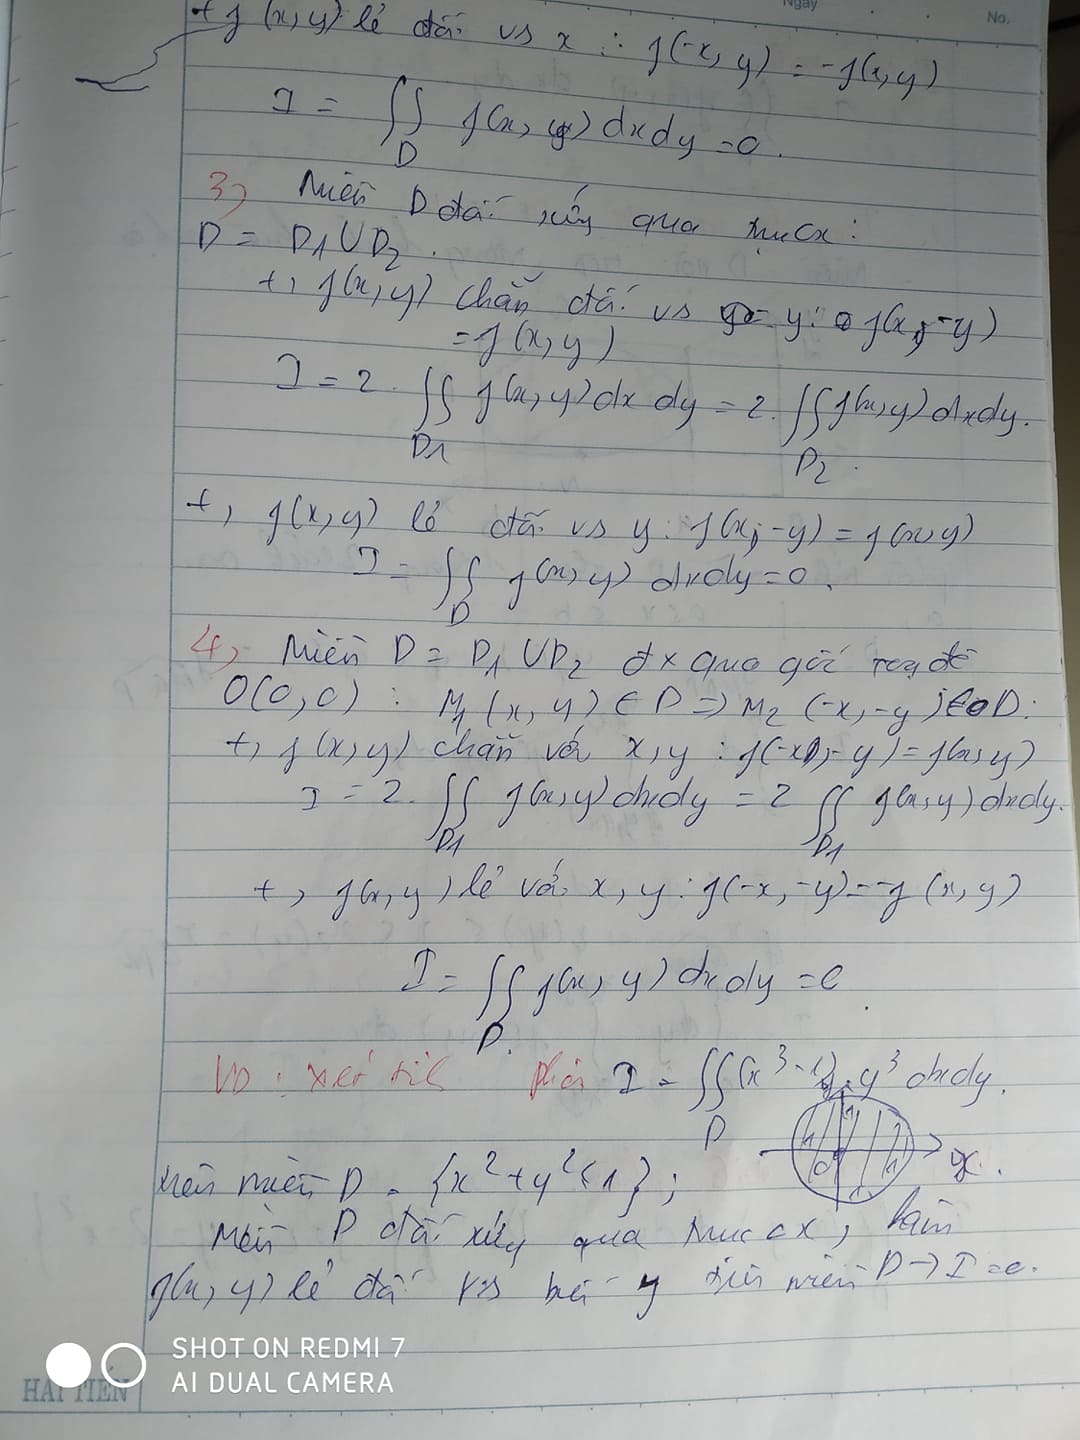 Ngày
No.
+ f(x,y) lẻ đối vs x : f(-x, y) = -f(x,y)
I = ∬ f(x, y) dxdy = 0.
D
3) Miền D đối xứng qua trục ox :
D = D1 ∪ D2 .
+, f(x,y) chẵn đối vs y : f(x, -y)
= f(x,y)
I = 2. ∬ f(x,y) dx dy = 2. ∬ f(x,y) dxdy.
D1 D2 .
+, f(x,y) lẻ đối vs y : f(x, -y) = f(x,y)
I = ∬ f(x,y) dxdy = 0 .
D
4) Miền D = D1 ∪ D2 đx qua gốc toạ độ
O(0,0) : M1 (x, y) ∈ D => M2 (-x, -y) ∈ D :
+, f(x,y) chẵn với x, y : f(-x, -y) = f(x,y)
I = 2. ∬ f(x,y) dxdy = 2 ∬ f(x,y) dxdy.
D1 D1
+, f(x,y) lẻ với x, y : f(-x, -y) = -f (x, y)
I = ∬ f(x, y) dxdy = 0
D.
VD : xét tích phân I = ∬ (x³ - 1) . y³ dxdy.
D
x .
trên miền D = {x² + y² ≤ 1} ;
Miền D đối xứng qua trục ox , hàm
f(x, y) lẻ đối vs biến y trên miền D → I = 0.
SHOT ON REDMI 7
AI DUAL CAMERA
HẢI TIẾN